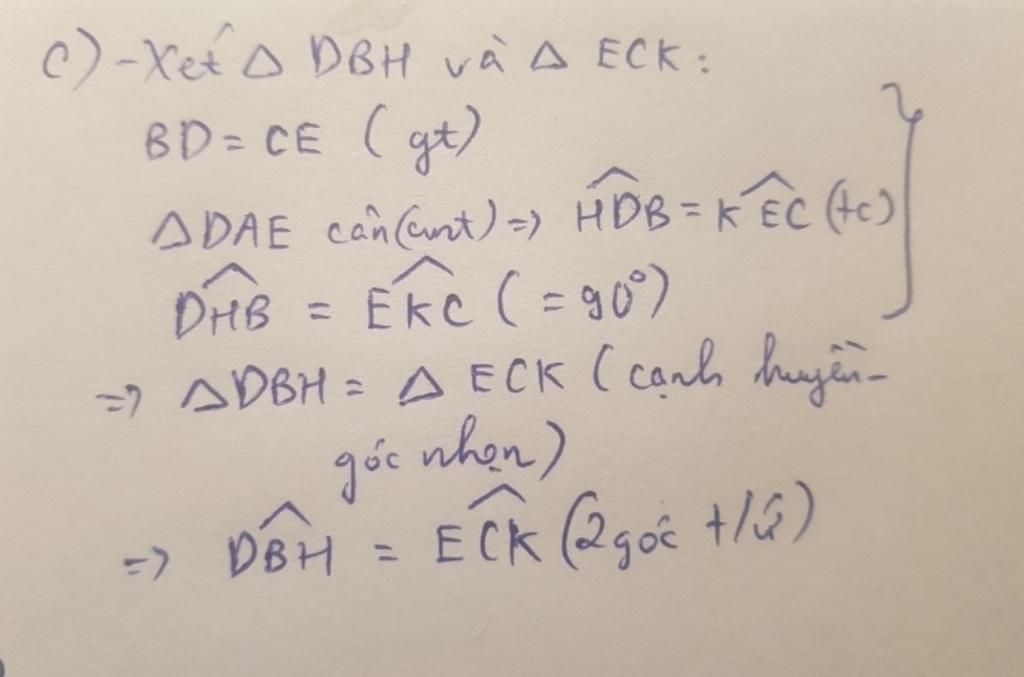 c) - Xét Δ DBH và Δ ECK:
BD = CE (gt)
ΔDAE cân (cmt) => \widehat{HDB} = \widehat{KEC} (tc)
\widehat{DHB} = \widehat{EKC} (= 90°)
=> ΔDBH = Δ ECK (cạnh huyền-
góc nhọn)
=> \widehat{DBH} = \widehat{ECK} (2 góc t/ứ)